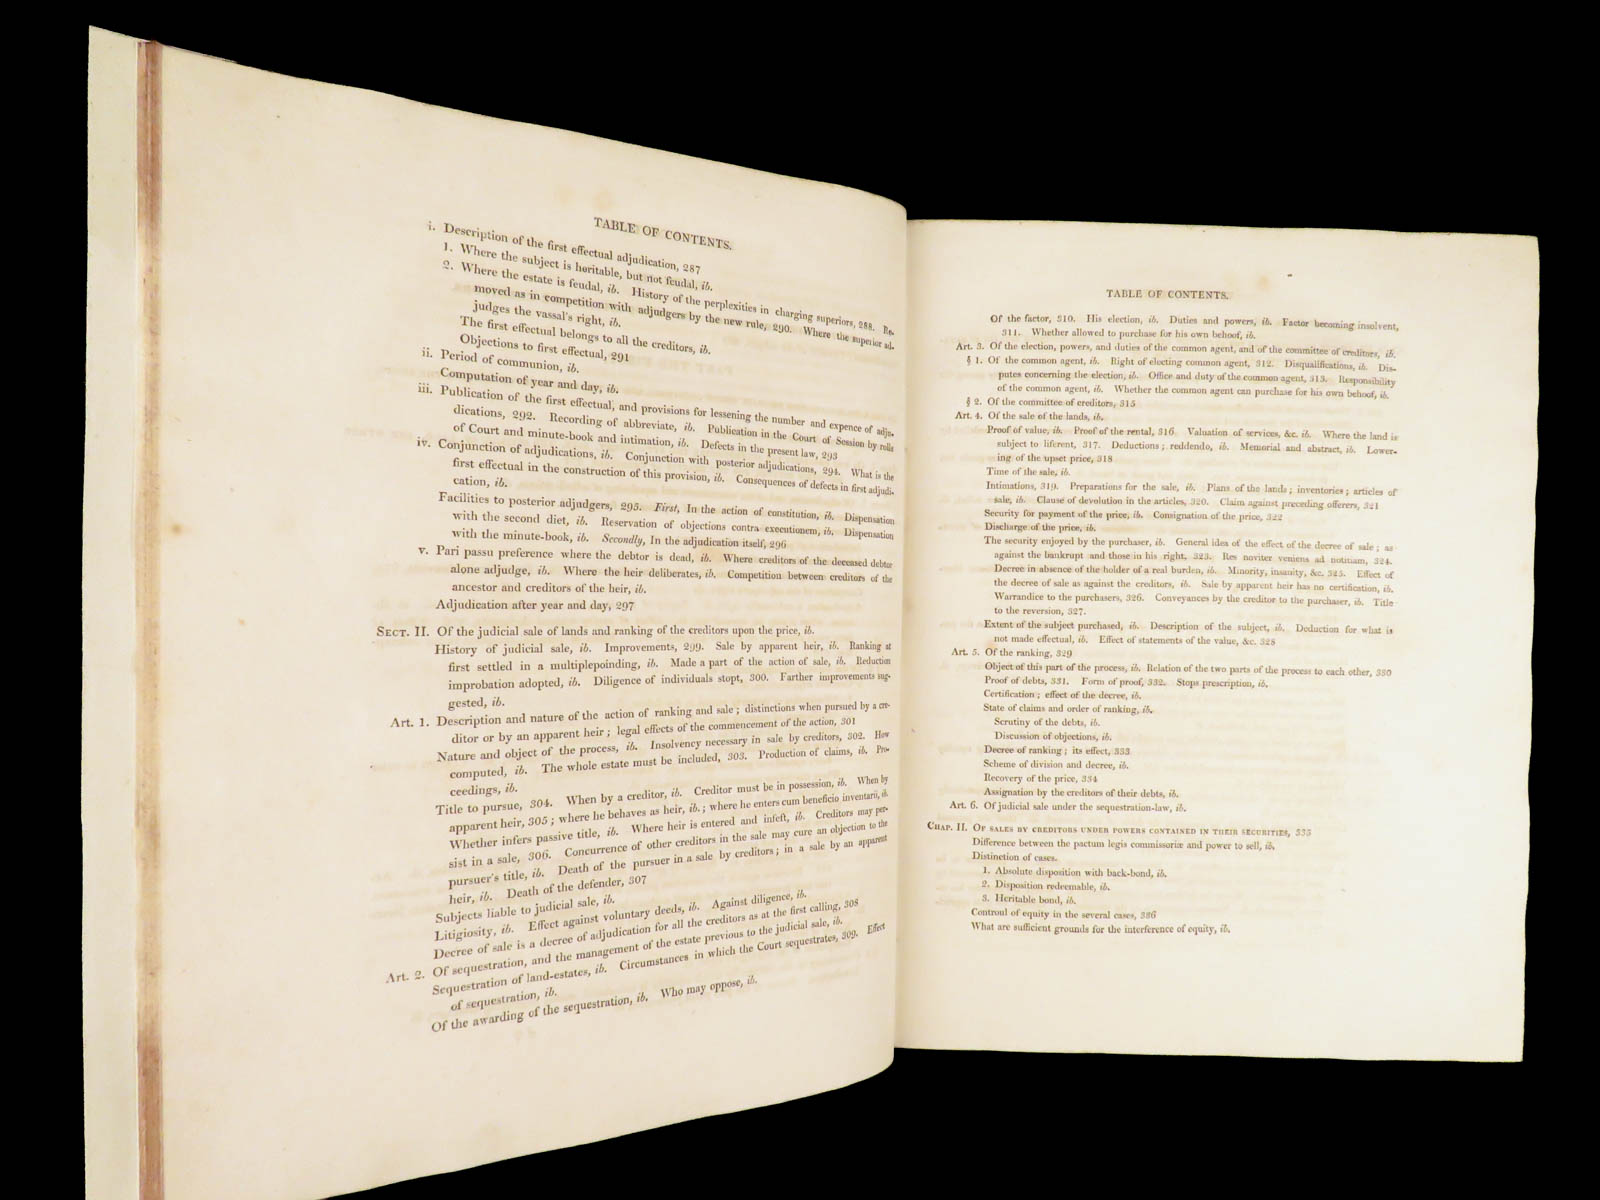 TABLE OF CONTENTS.
i. Description of the first effectual adjudication, 287
1. Where the subject is heritable, but not feudal, ib.
2. Where the estate is feudal, ib. History of the perplexities in charging superiors, 288. Re-
moved as in competition with adjudgers by the new rule, 290. Where the superior ad-
judges the vassal's right, ib.
The first effectual belongs to all the creditors, ib.
Objections to first effectual, 291
ii. Period of communion, ib.
Computation of year and day, ib.
iii. Publication of the first effectual, and provisions for lessening the number and expence of adju-
dications, 292. Recording of abbreviate, ib. Publication in the Court of Session by rolls
of Court and minute-book and intimation, ib. Defects in the present law, 293
iv. Conjunction of adjudications, ib. Conjunction with posterior adjudications, 294. What is the
first effectual in the construction of this provision, ib. Consequences of defects in first adjudi-
cation, ib.
Facilities to posterior adjudgers, 295. First, In the action of constitution, ib. Dispensation
with the second diet, ib. Reservation of objections contra executionem, ib. Dispensation
with the minute-book, ib. Secondly, In the adjudication itself, 296
v. Pari passu preference where the debtor is dead, ib. Where creditors of the deceased debtor
alone adjudge, ib. Where the heir deliberates, ib. Competition between creditors of the
ancestor and creditors of the heir, ib.
Adjudication after year and day, 297
SECT. II. Of the judicial sale of lands and ranking of the creditors upon the price, ib.
History of judicial sale, ib. Improvements, 299. Sale by apparent heir, ib. Ranking at
first settled in a multiplepoinding, ib. Made a part of the action of sale, ib. Reduction
improbation adopted, ib. Diligence of individuals stopt, 300. Farther improvements sug-
gested, ib.
Art. 1. Description and nature of the action of ranking and sale; distinctions when pursued by a cre-
ditor or by an apparent heir; legal effects of the commencement of the action, 301
Nature and object of the process, ib. Insolvency necessary in sale by creditors, 302. How
computed, ib. The whole estate must be included, 303. Production of claims, ib. Pro-
ceedings, ib.
Title to pursue, 304. When by a creditor, ib. Creditor must be in possession, ib. When by
apparent heir, 305; where he behaves as heir, ib.; where he enters cum beneficio inventarii, ib.
Whether infers passive title, ib. Where heir is entered and infeft, ib. Creditors may per-
sist in a sale, 306. Concurrence of other creditors in the sale may cure an objection to the
pursuer's title, ib. Death of the pursuer in a sale by creditors; in a sale by an apparent
heir, ib. Death of the defender, 307
Subjects liable to judicial sale, ib.
Litigiosity, ib. Effect against voluntary deeds, ib. Against diligence, ib.
Decree of sale is a decree of adjudication for all the creditors as at the first calling, 308
Art. 2. Of sequestration, and the management of the estate previous to the judicial sale, ib.
Sequestration of land-estates, ib. Circumstances in which the Court sequestrates, 309. Effect
of sequestration, ib.
Of the awarding of the sequestration, ib. Who may oppose, ib.
TABLE OF CONTENTS.
Of the factor, 310. His election, ib. Duties and powers, ib. Factor becoming insolvent,
311. Whether allowed to purchase for his own behoof, ib.
Art. 3. Of the election, powers, and duties of the common agent, and of the committee of creditors, ib.
§ 1. Of the common agent, ib. Right of electing common agent, 312. Disqualifications, ib. Dis-
putes concerning the election, ib. Office and duty of the common agent, 313. Responsibility
of the common agent, ib. Whether the common agent can purchase for his own behoof, ib.
§ 2. Of the committee of creditors, 315
Art. 4. Of the sale of the lands, ib.
Proof of value, ib. Proof of the rental, 316. Valuation of services, &c. ib. Where the land is
subject to liferent, 317. Deductions; reddendo, ib. Memorial and abstract, ib. Lower-
ing of the upset price, 318
Time of the sale, ib.
Intimations, 319. Preparations for the sale, ib. Plans of the lands; inventories; articles of
sale, ib. Clause of devolution in the articles, 320. Claim against preceding offerers, 321
Security for payment of the price, ib. Consignation of the price, 322
Discharge of the price, ib.
The security enjoyed by the purchaser, ib. General idea of the effect of the decree of sale; as
against the bankrupt and those in his right, 323. Res noviter veniens ad notitiam, 324.
Decree in absence of the holder of a real burden, ib. Minority, insanity, &c. 325. Effect of
the decree of sale as against the creditors, ib. Sale by apparent heir has no certification, ib.
Warrandice to the purchasers, 326. Conveyances by the creditor to the purchaser, ib. Title
to the reversion, 327.
Extent of the subject purchased, ib. Description of the subject, ib. Deduction for what is
not made effectual, ib. Effect of statements of the value, &c. 328
Art. 5. Of the ranking, 329
Object of this part of the process, ib. Relation of the two parts of the process to each other, 330
Proof of debts, 331. Form of proof, 332. Stops prescription, ib.
Certification; effect of the decree, ib.
State of claims and order of ranking, ib.
Scrutiny of the debts, ib.
Discussion of objections, ib.
Decree of ranking; its effect, 333
Scheme of division and decree, ib.
Recovery of the price, 334
Assignation by the creditors of their debts, ib.
Art. 6. Of judicial sale under the sequestration-law, ib.
CHAP. II. OF SALES BY CREDITORS UNDER POWERS CONTAINED IN THEIR SECURITIES, 335
Difference between the pactum legis commissoriæ and power to sell, ib.
Distinction of cases.
1. Absolute disposition with back-bond, ib.
2. Disposition redeemable, ib.
3. Heritable bond, ib.
Controul of equity in the several cases, 336
What are sufficient grounds for the interference of equity, ib.